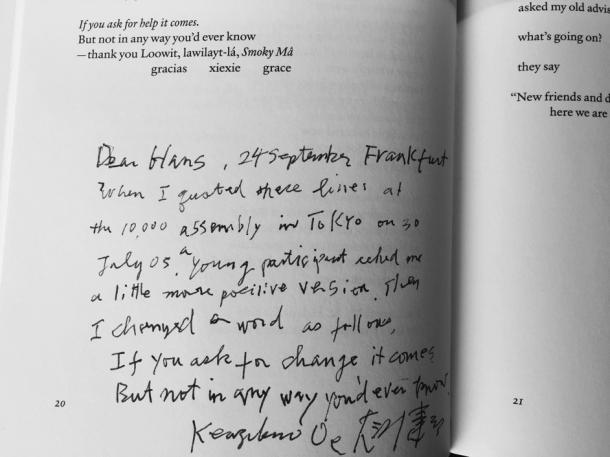 If you ask for help it comes.
But not in any way you'd ever know
—thank you Loowit, lawilayt-lá, Smoky Mâ
gracias xiexie grace
Dear Hans, 24 September Frankfurt
When I quoted these lines at
the 10,000 assembly in TOKYO on 30
July 05, a young participant asked me
a little more positive version. Then
I changed a word as follows,
If you ask for change it comes
But not in any way you'd ever know.
Kenzaburo Oe 大江健三郎
20
asked my old advis
what's going on?
they say
"New friends and d
here we are
21